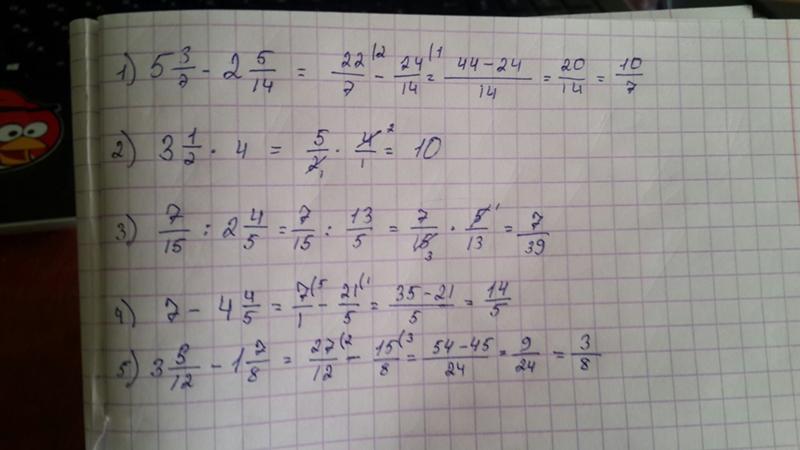 1) 5 3/7 - 2 5/14 = 22/7 (2 - 24/14 (1 = 44-24/14 = 20/14 = 10/7
2) 3 1/2 · 4 = 5/2 1 · 4/1 2 = 10
3) 7/15 : 2 4/5 = 7/15 : 13/5 = 7/15 3 · 5/13 1 = 7/39
4) 7 - 4 4/5 = 7/1 (5 - 21/5 (1 = 35-21/5 = 14/5
5) 3 9/12 - 1 7/8 = 27/12 (2 - 15/8 (3 = 54-45/24 = 9/24 = 3/8